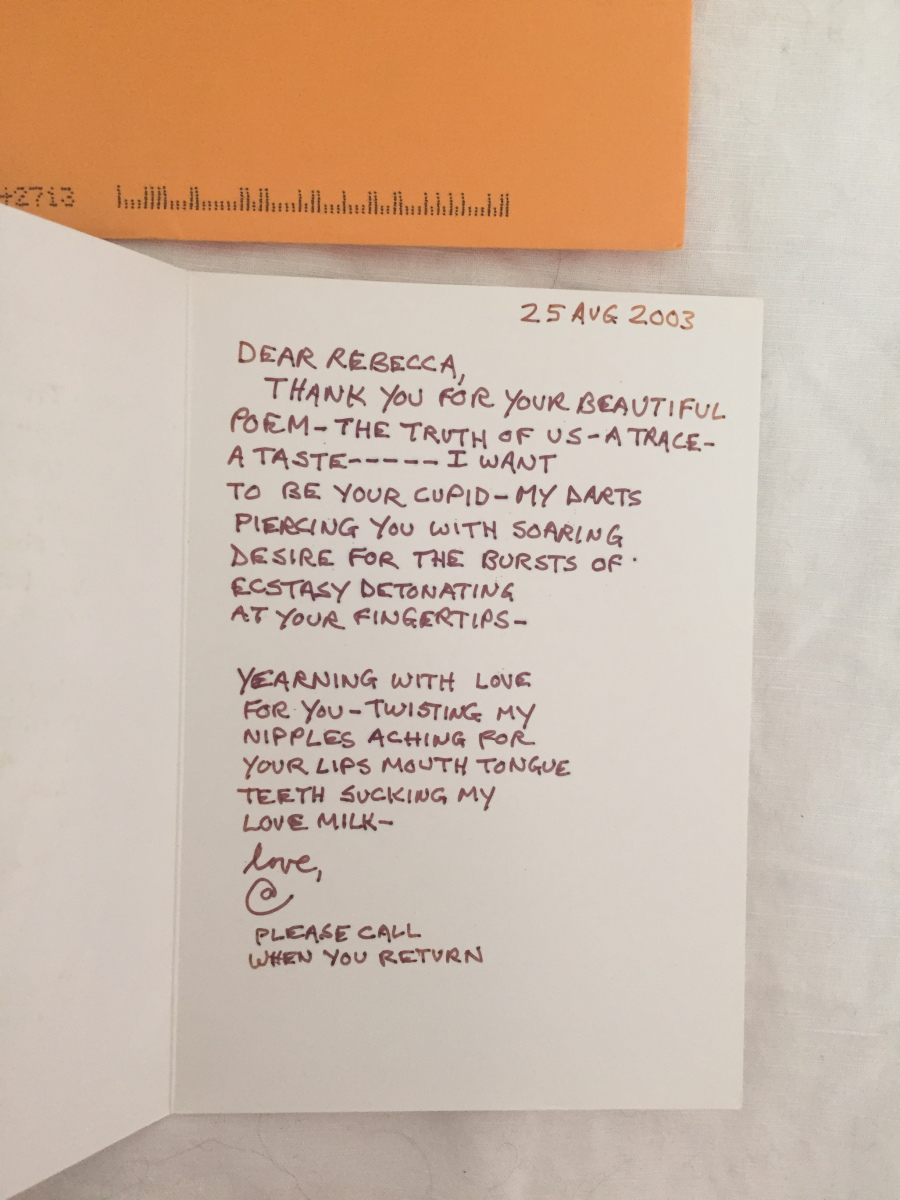 42713
25 AUG 2003
DEAR REBECCA,
THANK YOU FOR YOUR BEAUTIFUL
POEM-THE TRUTH OF US-A TRACE-
A TASTE------I WANT
TO BE YOUR CUPID-MY DARTS
PIERCING YOU WITH SOARING
DESIRE FOR THE BURSTS OF
ECSTASY DETONATING
AT YOUR FINGERTIPS-
YEARNING WITH LOVE
FOR YOU-TWISTING MY
NIPPLES ACHING FOR
YOUR LIPS MOUTH TONGUE
TEETH SUCKING MY
LOVE MILK-
love,
@
PLEASE CALL
WHEN YOU RETURN